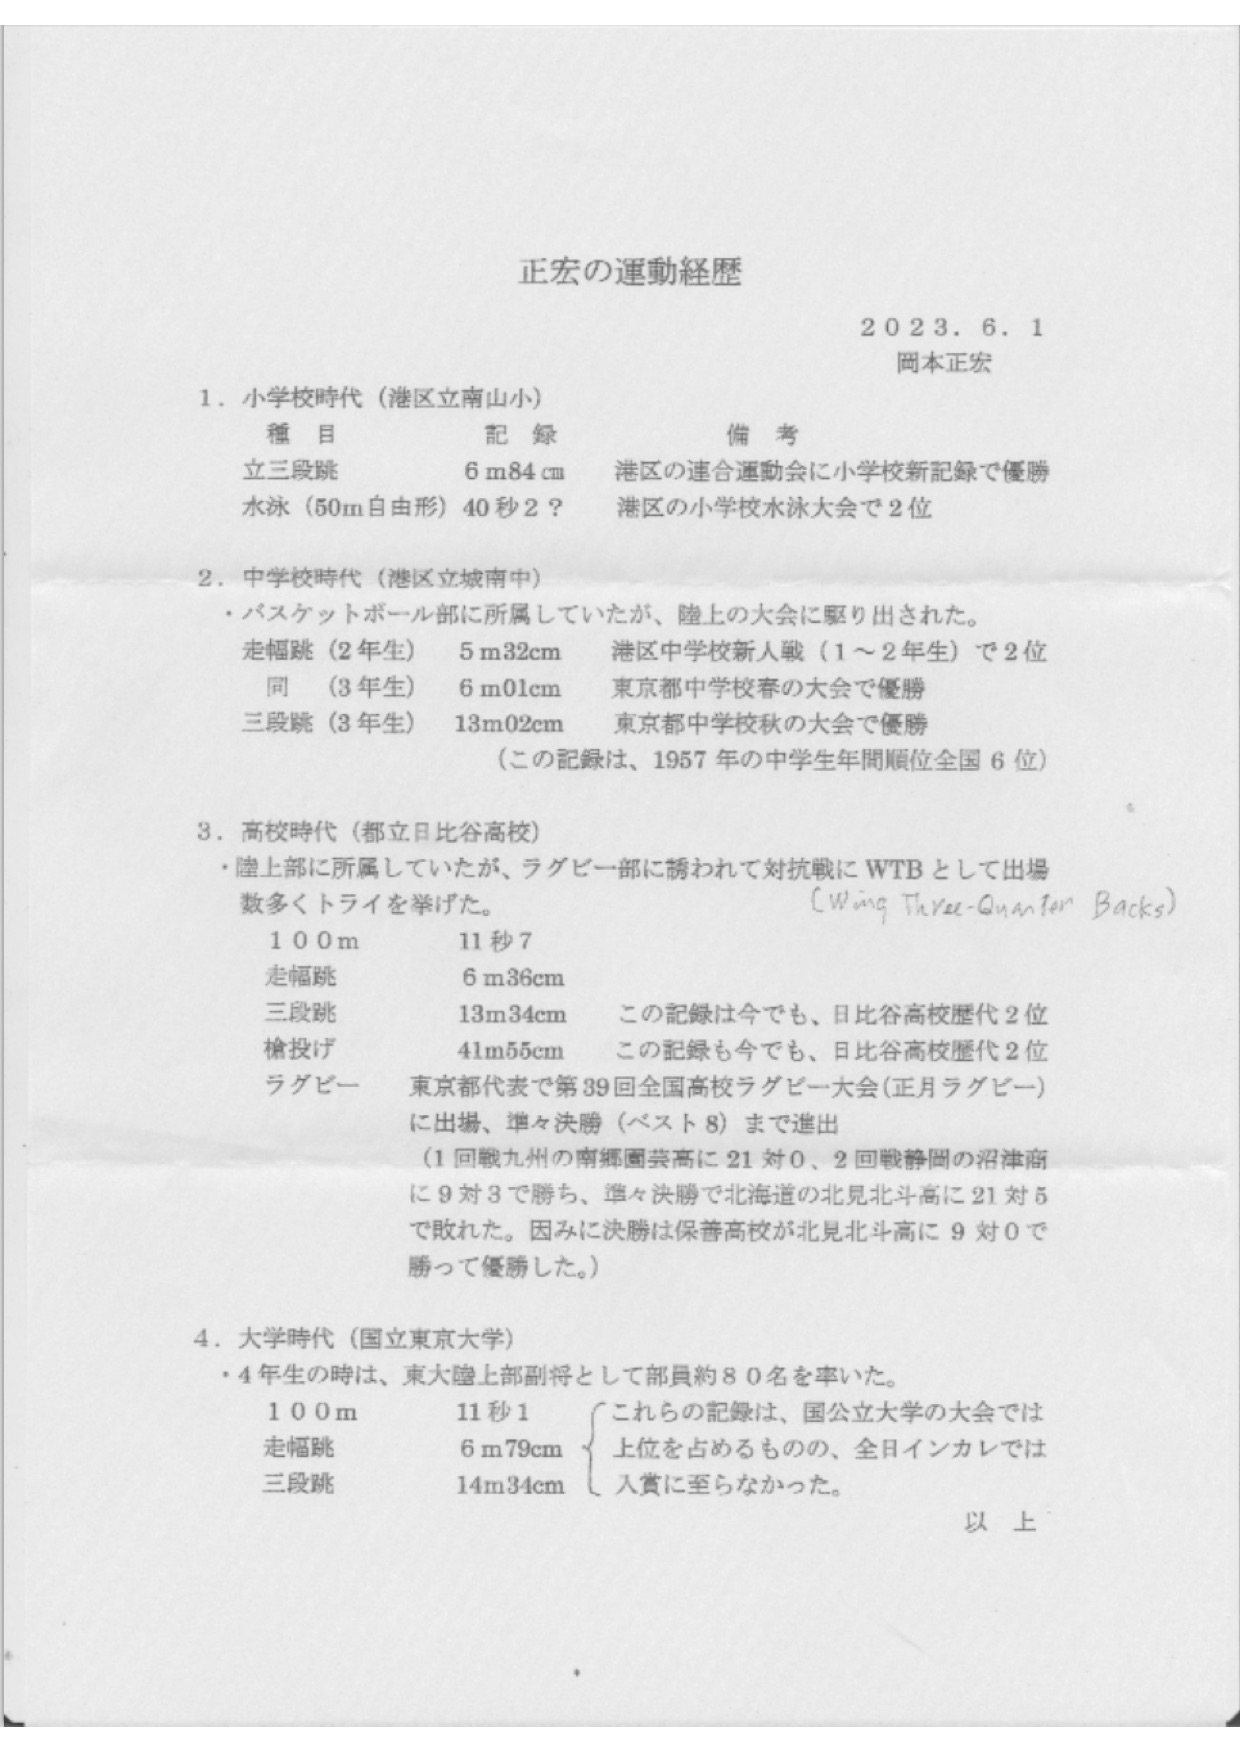 正宏の運動経歴
２０２３．６．１
岡本正宏
１．小学校時代（港区立南山小）
種　目　　記　録　　備　考
立三段跳　６m84㎝　港区の連合運動会に小学校新記録で優勝
水泳（50m自由形）40秒２？　港区の小学校水泳大会で２位
２．中学校時代（港区立城南中）
・バスケットボール部に所属していたが、陸上の大会に駆り出された。
走幅跳（２年生）　５m32cm　港区中学校新人戦（１～２年生）で２位
同　（３年生）　６m01cm　東京都中学校春の大会で優勝
三段跳（３年生）　13m02cm　東京都中学校秋の大会で優勝
（この記録は、1957 年の中学生年間順位全国 6 位）
３．高校時代（都立日比谷高校）
・陸上部に所属していたが、ラグビー部に誘われて対抗戦に WTB として出場
数多くトライを挙げた。　（Wing Three-Quarter Backs）
１００m　11秒７
走幅跳　６m36cm
三段跳　13m34cm　この記録は今でも、日比谷高校歴代２位
槍投げ　41m55cm　この記録も今でも、日比谷高校歴代２位
ラグビー　東京都代表で第39回全国高校ラグビー大会（正月ラグビー）
に出場、準々決勝（ベスト8）まで進出
（1 回戦九州の南郷園芸高に 21 対０、２回戦静岡の沼津商
に９対３で勝ち、準々決勝で北海道の北見北斗高に 21 対５
で敗れた。因みに決勝は保善高校が北見北斗高に 9 対０で
勝って優勝した。）
４．大学時代（国立東京大学）
・４年生の時は、東大陸上部副将として部員約８０名を率いた。
１００m　11秒１　これらの記録は、国公立大学の大会では
走幅跳　６m79cm　上位を占めるものの、全日インカレでは
三段跳　14m34cm　入賞に至らなかった。
以　上